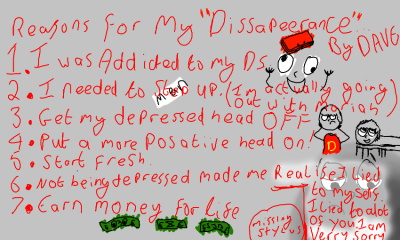 Reasons for My "Dissapeerance"...
By DAVE
1. I was Addicted to my Ds
2. I needed to up. (Im actually going out with Moiah)
3. Get my depressed head OFF
4. Put a more Posative head on!
5. Start Fresh.
6. Not being depressed made me Realise I lied
to my self
I lied to alot
of you. I am
Verry Sorry
7. Earn money for life
missing styous
D